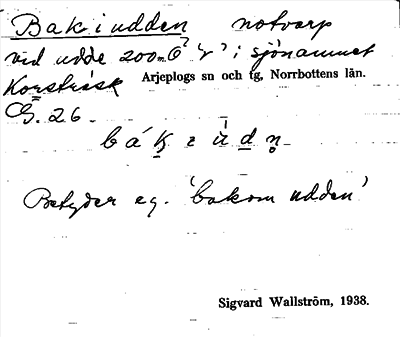 Bak i udden notvarp
vid udde 200 m O
i sjönamnet
Arjeplogs sn och tg, Norrbottens län.
Korsträsk
G. 26.
Betyder eg. 'bakom udden'
Sigvard Wallström, 1938.